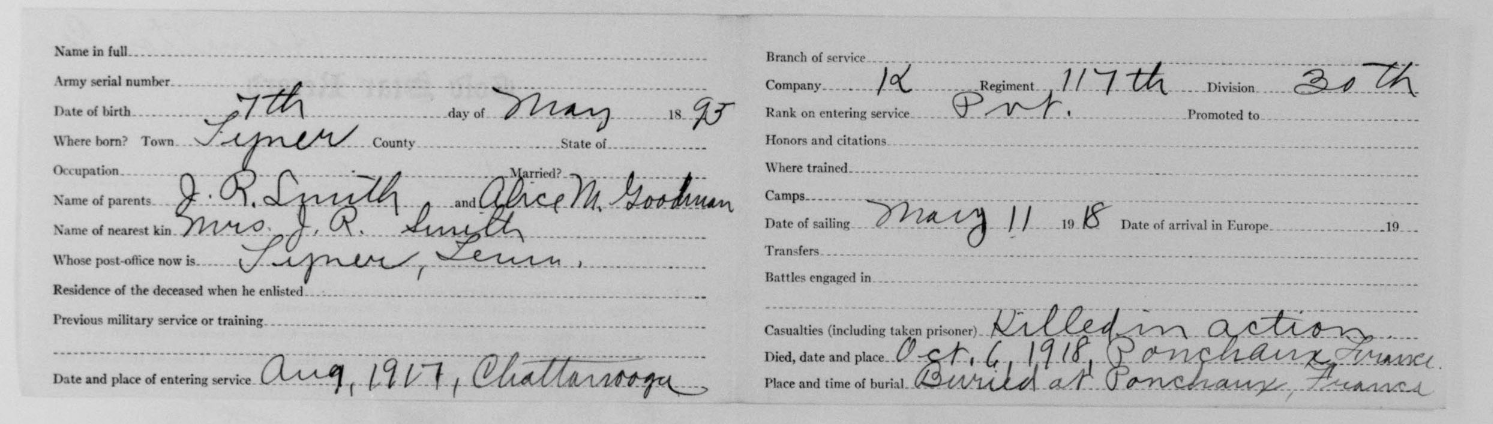 Name in full
Army serial number
Date of birth 7th day of May 1895
Where born? Town Tyner County State of
Occupation Married?
Name of parents J. R. Smith and Alice M. Goodman
Name of nearest kin Mrs. J. R. Smith
Whose post-office now is Tyner, Tenn.
Residence of the deceased when he enlisted
Previous military service or training
Date and place of entering service Aug, 1917, Chattanooga
Branch of service
Company K Regiment 117th Division 30th
Rank on entering service Pvt. Promoted to
Honors and citations
Where trained
Camps
Date of sailing May 11 1918 Date of arrival in Europe 19
Transfers
Battles engaged in
Casualties (including taken prisoner) Killed in action
Died, date and place Oct. 6, 1918, Ponchaux, France.
Place and time of burial Buried at Ponchaux, France